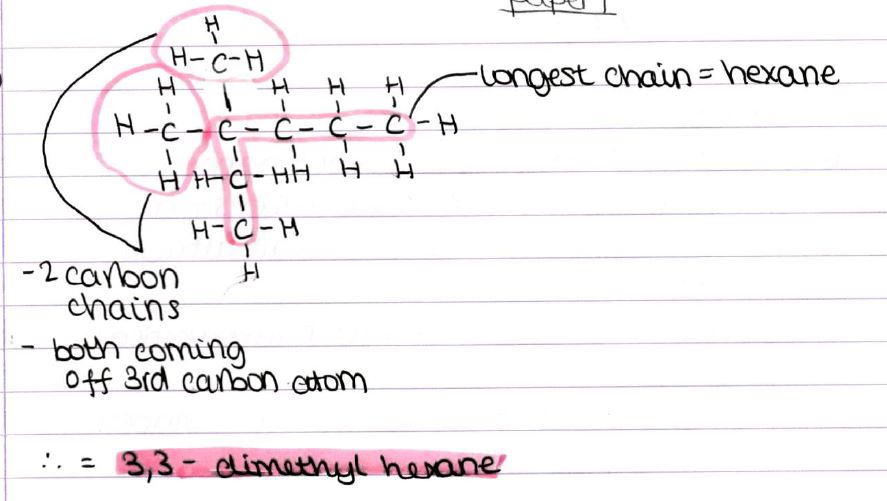 paper 1
H
H-C-H
H H H H
H-C-C-C-C-C-H
H H-C-HH H H
H-C-H
H
longest chain = hexane
- 2 carbon
chains
- both coming
off 3rd carbon atom
∴ = 3,3 - dimethyl hexane